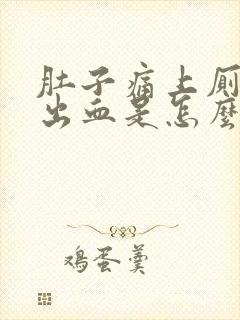 肚子痛上厕
出血是怎麼
鸡蛋羹